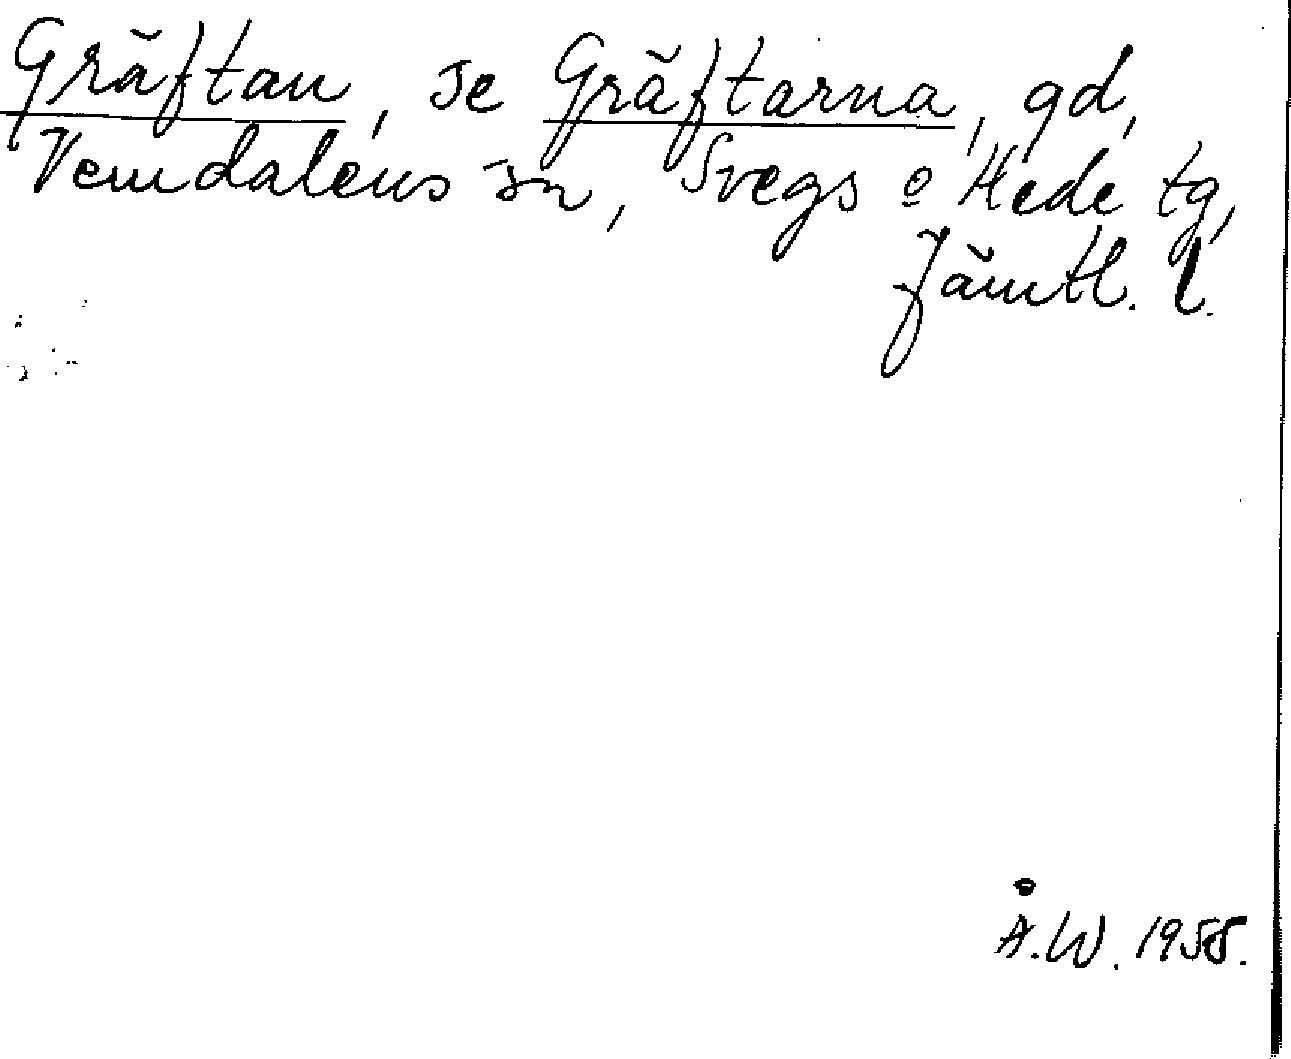 Gräftan, se Gräftarna, gd,
Vemdalens sn, Svegs o Hede tg,
Jämtl. l.
Å.W. 1958.